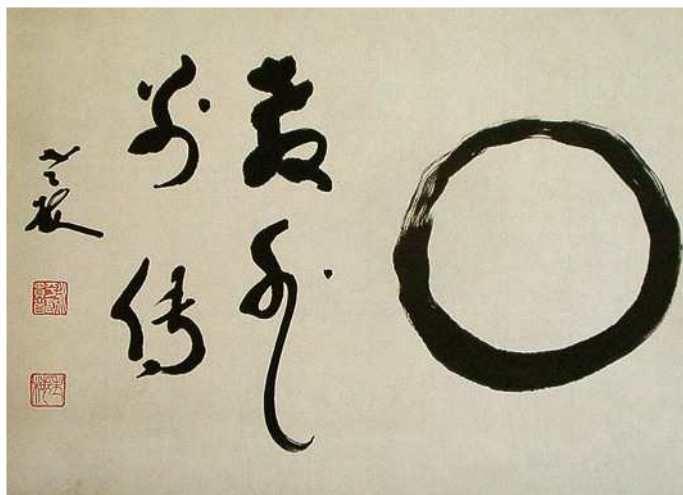 教外
別傳